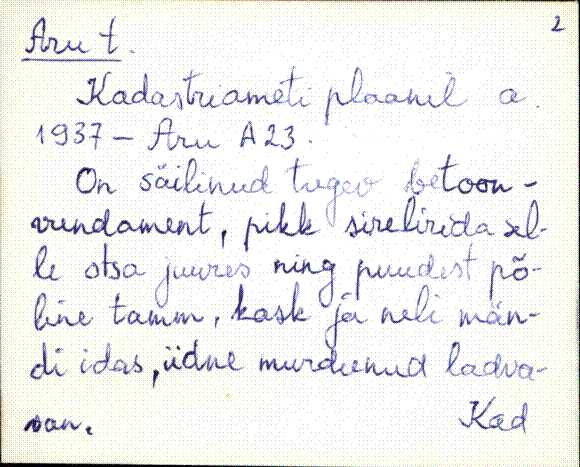 2
Aru t.
Kadastriameti plaanil a.
1937 – Aru A 23.
On säilinud tugev betoon-
vundament, pikk sirelirida sel-
le otsa juures ning puudest põ-
line tamm, kask ja neli män-
di idas, üdne murdunud ladva-
van.
Kad